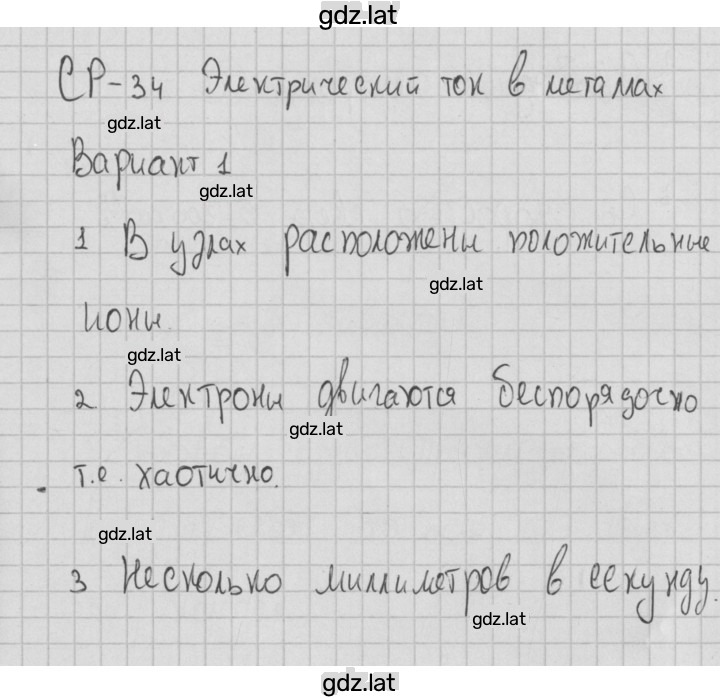 gdz.lat
СР-34 Электрический ток в металлах
gdz.lat
Вариант 1
gdz.lat
1 В узлах расположены положительные
gdz.lat
ионы.
gdz.lat
2 Электроны двигаются беспорядочно
gdz.lat
т.е. хаотично.
gdz.lat
3 Несколько миллиметров в секунду.
gdz.lat
gdz.lat